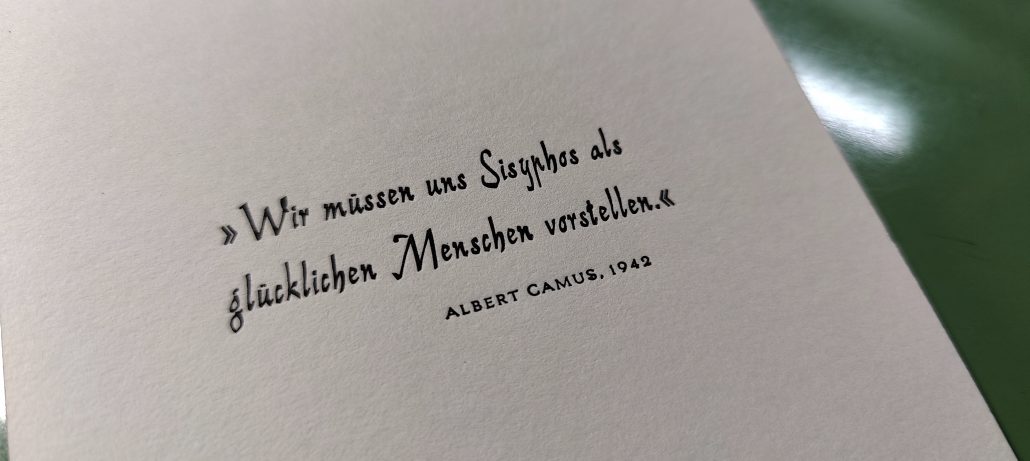 »Wir müssen uns Sisyphos als
glücklichen Menschen vorstellen.«
ALBERT CAMUS, 1942